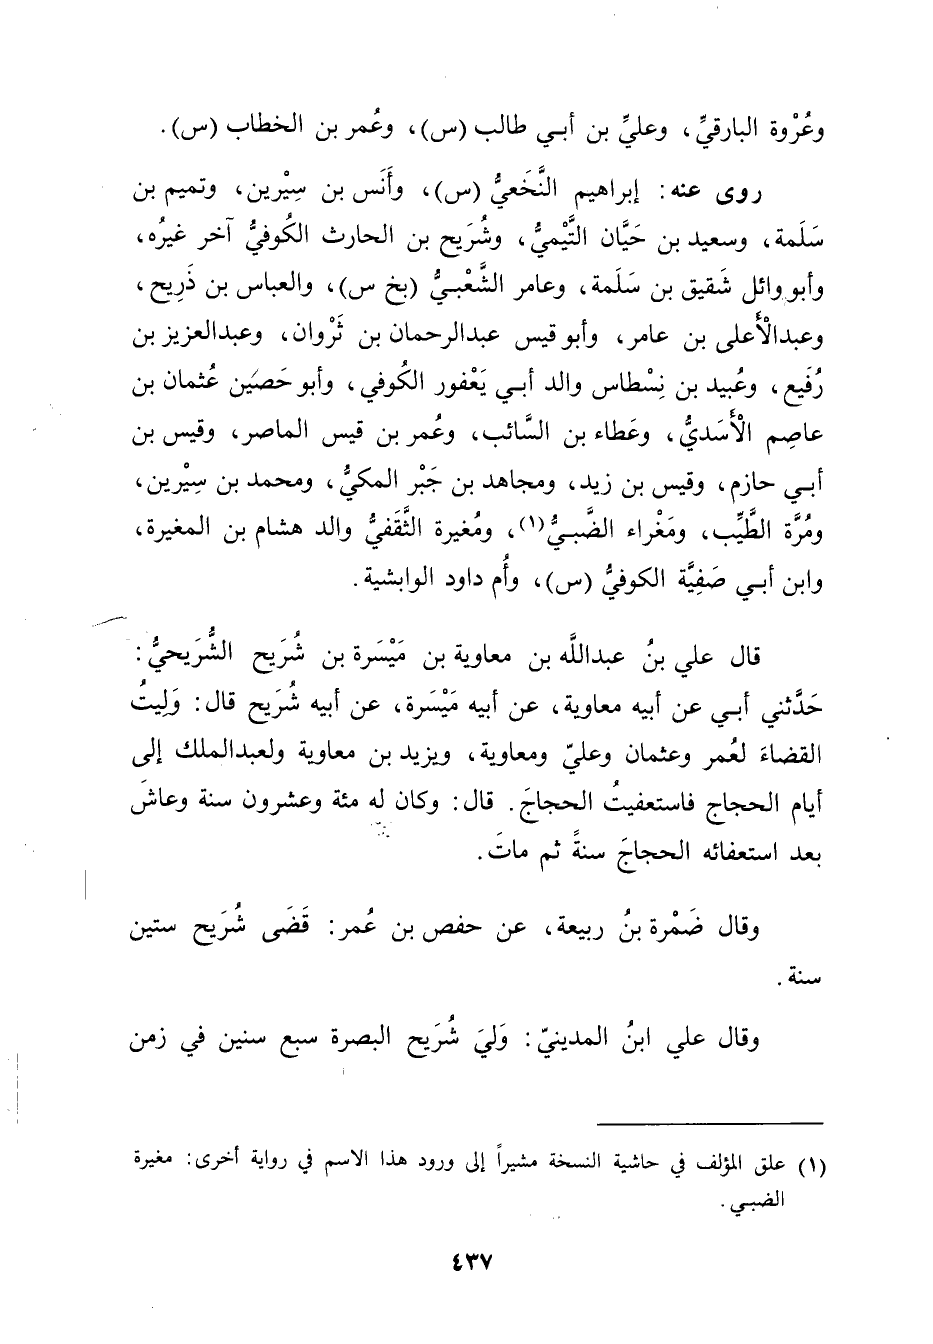 وعُرْوة البارقيِّ، وعليِّ بن أبي طالب (س)، وعُمر بن الخطاب (س).
روى عنه: إبراهيم النَّخَعيُّ (س)، وأَنَس بن سِيْرين، وتميم بن
سَلَمة، وسعيد بن حَيَّان التَّيْميُّ، وشُرَيح بن الحارث الكُوفيُّ آخر غيرُه،
وأبو وائل شَقيق بن سَلَمة، وعامر الشَّعْبيُّ (بخ س)، والعباس بن ذَرِيح،
وعبدالأَعلى بن عامر، وأبو قيس عبدالرحمان بن ثَرْوان، وعبدالعزيز بن
رُفَيع، وعُبيد بن نِسْطاس والد أبي يَعْفور الكُوفي، وأبو حَصَين عُثمان بن
عاصِم الأَسَديُّ، وعَطاء بن السَّائب، وعُمر بن قيس الماصر، وقيس بن
أبي حازم، وقيس بن زيد، ومجاهد بن جَبْر المكيُّ، ومحمد بن سِيْرين،
ومُرَّة الطَّيِّب، ومَغْراء الضَّبيُّ(١)، ومُغيرة الثَّقَفيُّ والد هشام بن المغيرة،
وابن أبي صَفِيَّة الكوفيُّ (س)، وأُم داود الوابشية.
قال علي بنُ عبداللَّه بن معاوية بن مَيْسَرة بن شُرَيح الشُّرَيحيُّ:
حَدَّثني أبي عن أبيه معاوية، عن أبيه مَيْسَرة، عن أبيه شُرَيح قال: وَلِيتُ
القضاءَ لعُمر وعثمان وعليّ ومعاوية، ويزيد بن معاوية ولعبدالملك إلى
أيام الحجاج فاستعفيتُ الحجاجَ. قال: وكان له مئة وعشرون سنة وعاشَ
بعد استعفائه الحجاجَ سنةً ثم ماتَ.
وقال ضَمْرة بنُ ربيعة، عن حفص بن عُمر: قَضَى شُرَيح ستين
سنة.
وقال علي ابنُ المدينيّ: وَليَ شُرَيح البصرة سبع سنين في زمن
(١) علق المؤلف في حاشية النسخة مشيراً إلى ورود هذا الاسم في رواية أخرى: مغيرة
الضبي.
٤٣٧